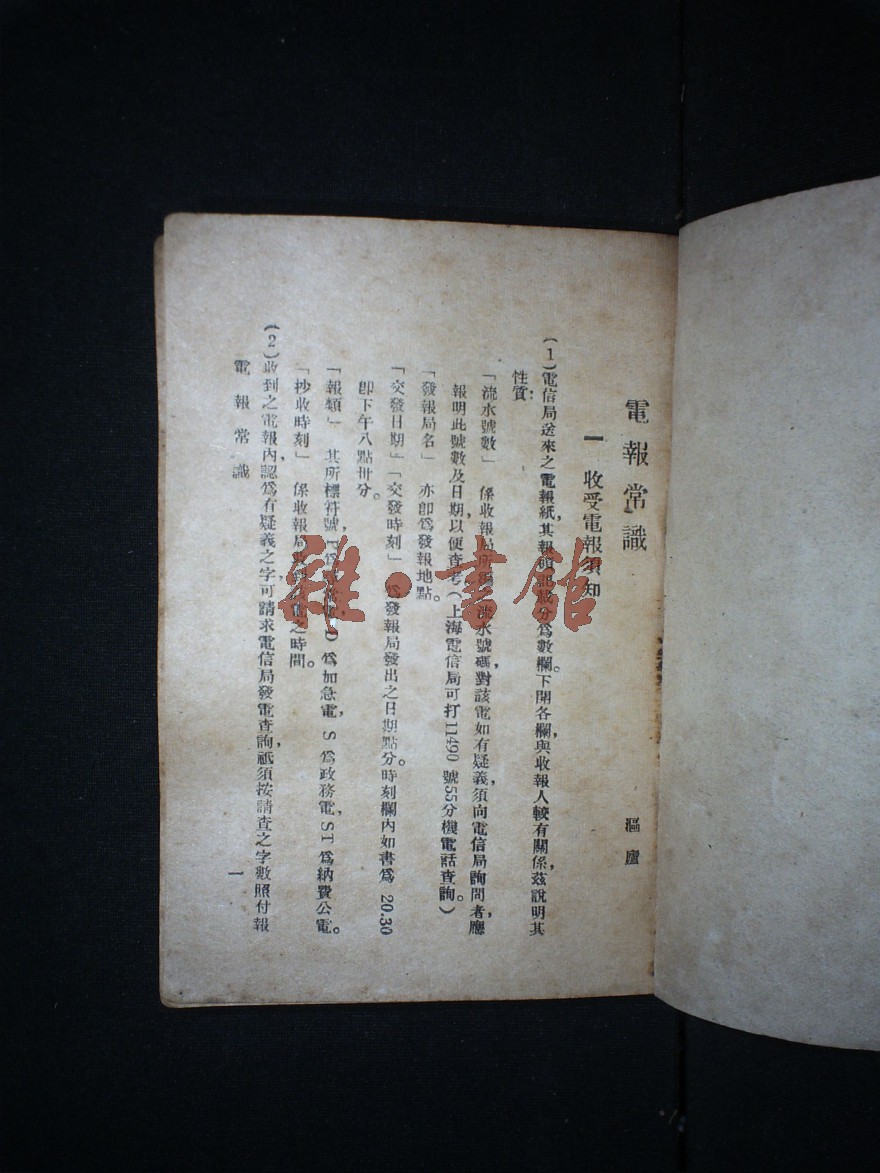 電報常識
漚廬
一 收受電報須知
(1)電信局送來之電報紙,其報頭記載分為數欄。下開各欄,與收報人較有關係,茲說明其
性質:
「流水號數」 係收報局所編 流水號碼,對該電如有疑義,須向電信局詢問者,應
報明此號數及日期,以便查考(上海電信局可打11490 號55分機電話查詢。)
「發報局名」 亦卽為發報地點。
「交發日期」「交發時刻」 為發報局發出之日期點分。時刻欄內如書為 20.30
卽下午八點卅分。
「報類」 其所標符號, 為 D 為加急電, S 為政務電, ST 為納費公電。
「抄收時刻」 係收報局 之時間。
(2)收到之電報內,認為有疑義之字,可請求電信局發電查詢,祇須按請查之字數照付報
電報常識
一
雜·書館